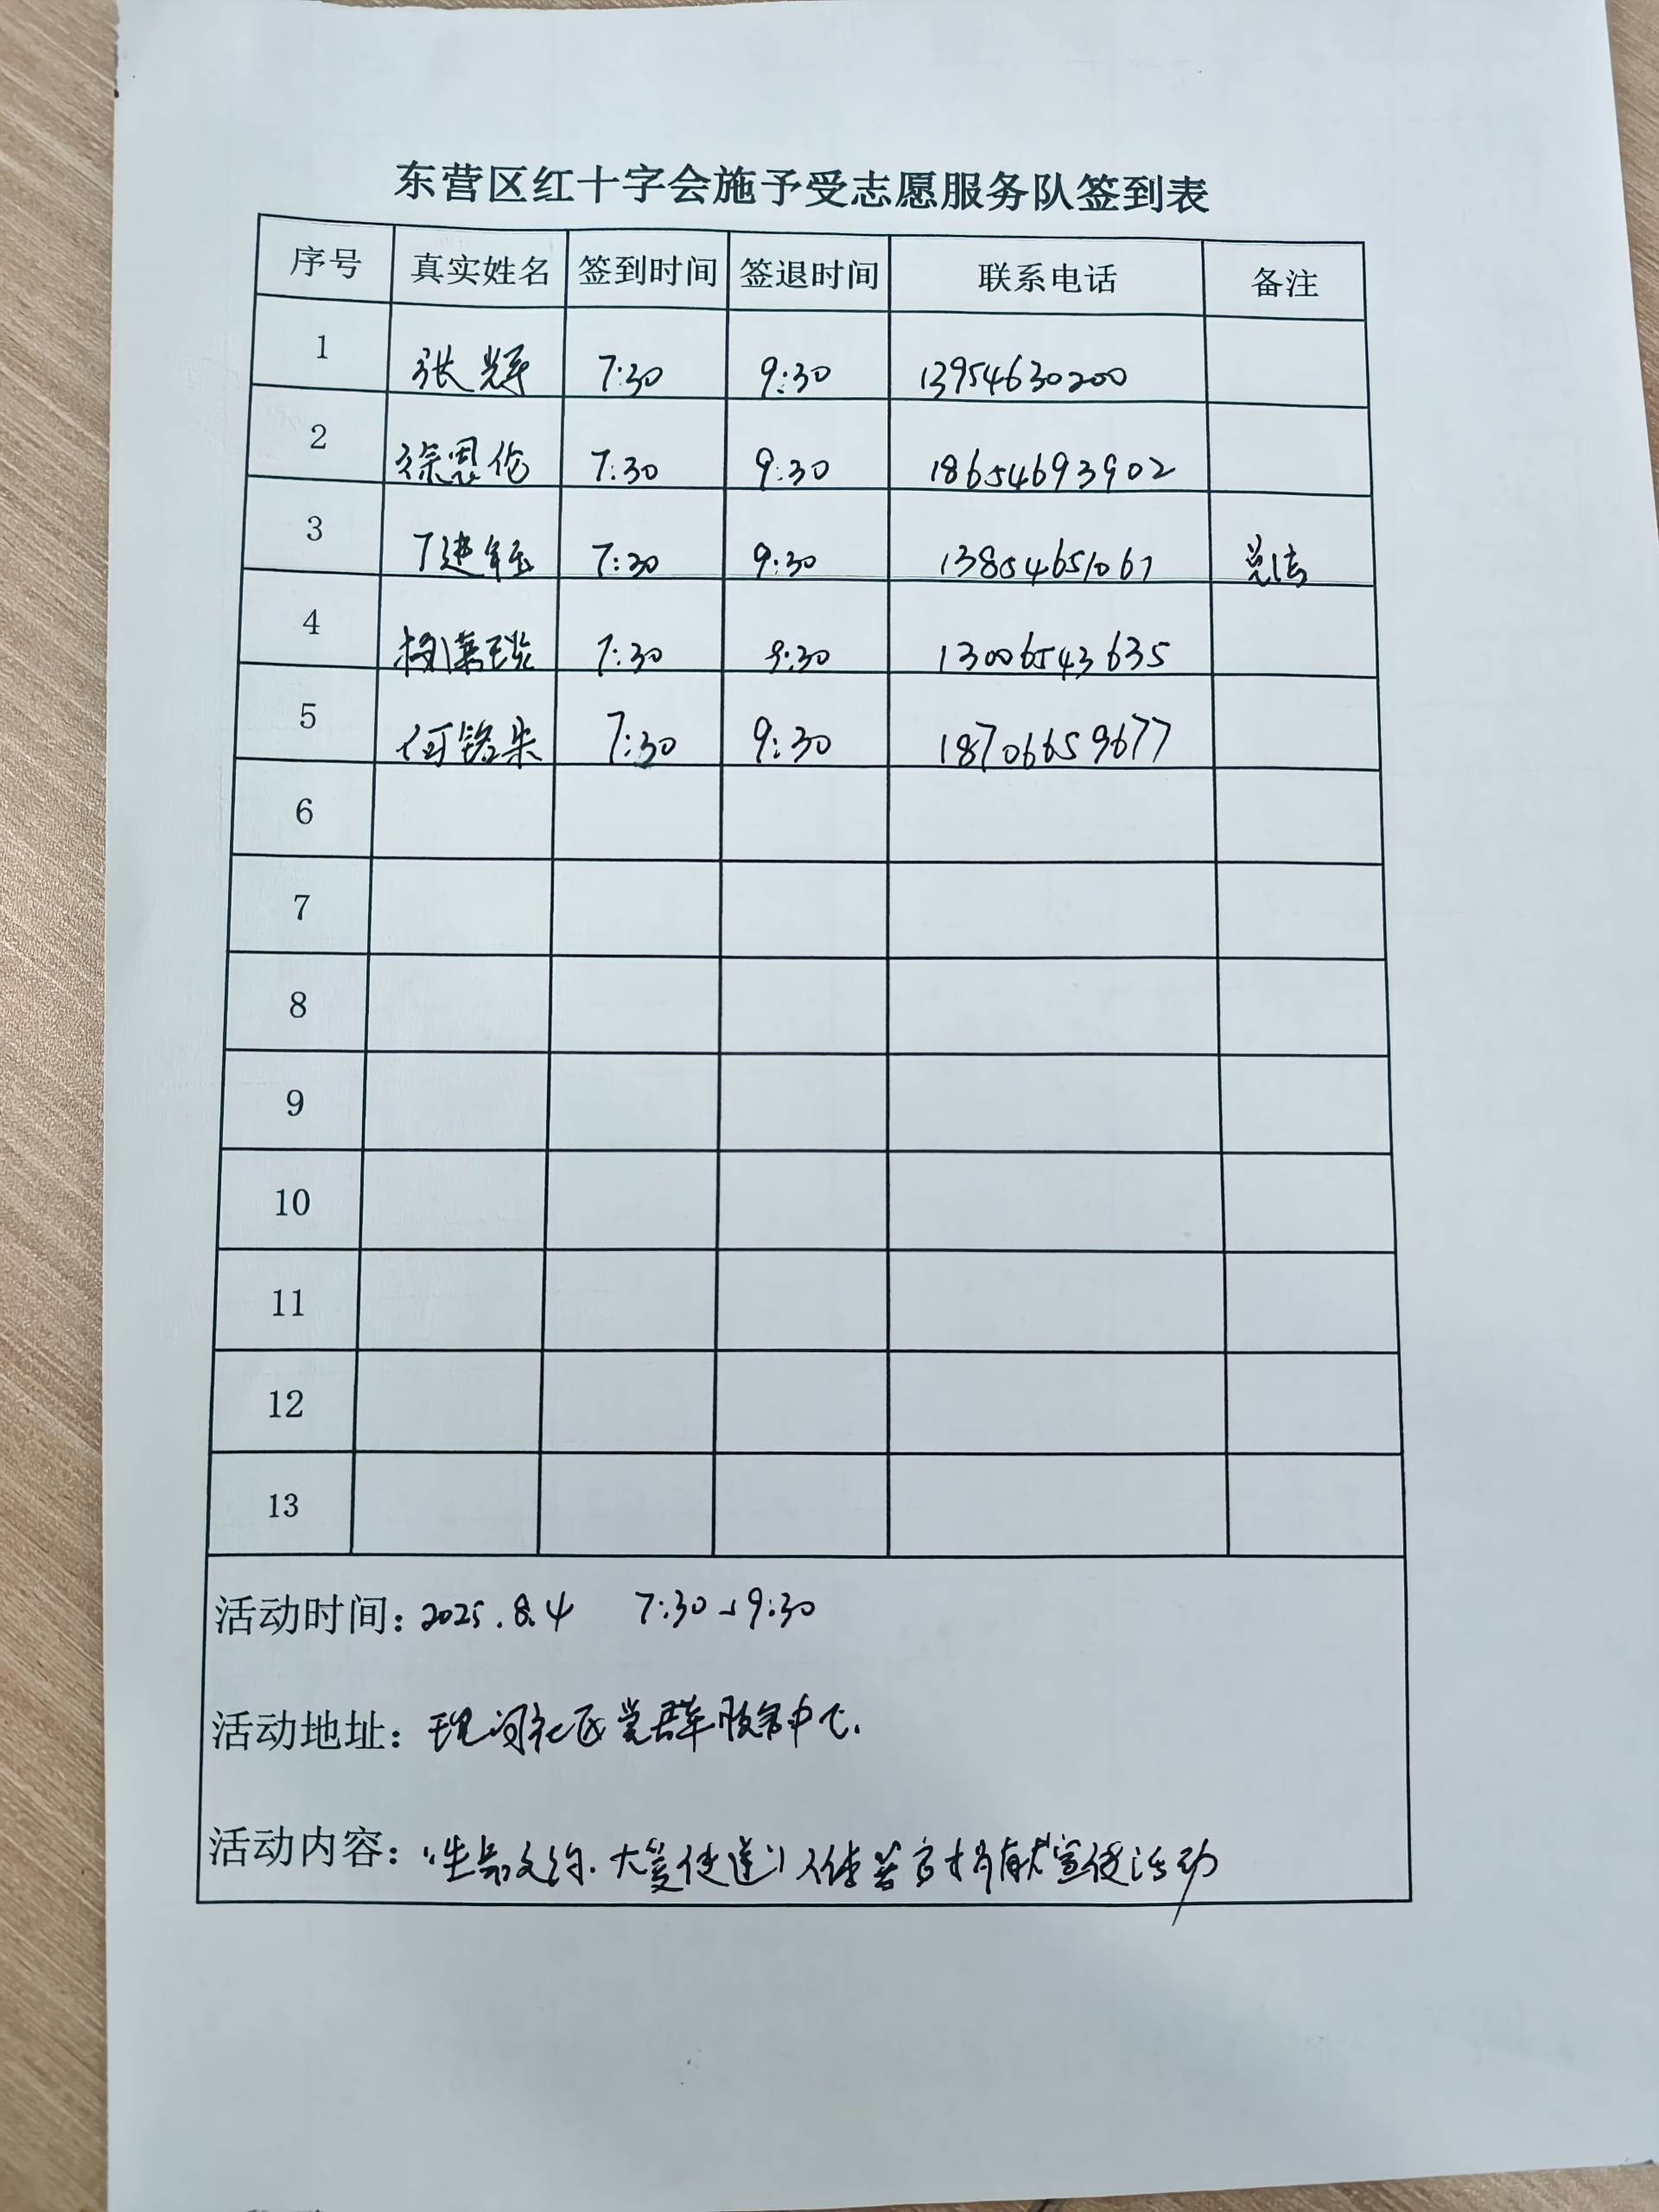 东营区红十字会施予受志愿服务队签到表
序号 真实姓名 签到时间 签退时间 联系电话 备注
1 张辉 7:30 9:30 13954630200
2 徐恩伦 7:30 9:30 18654693902
3 丁建钰 7:30 9:30 13854651067
4 7:30 9:30 13006543635
5 何铭朱 7:30 9:30 18706659677
6
7
8
9
10
11
12
13
活动时间: 2025.8.4 7:30-9:30
活动地址: 社区党群服务中心.
活动内容: “生命 大爱传递”人体器官捐献宣传活动